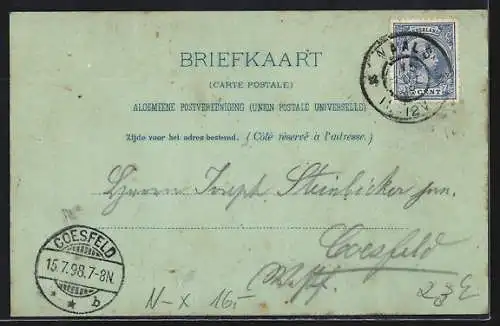 BRIEFKAART
(CARTE POSTALE)
ALGEMEENE POSTVEREENIGING (UNION POSTALE UNIVERSELLE)
Zijde voor het adres bestemd. (Côté réservé à l'adresse.)
NEDERLAND
CENT
VAALS
12V
Herrn Joseph Steinbicker jun.
Coesfeld
Westf.
COESFELD
15.7.98.7-8N.
* * b
N-X 16.-